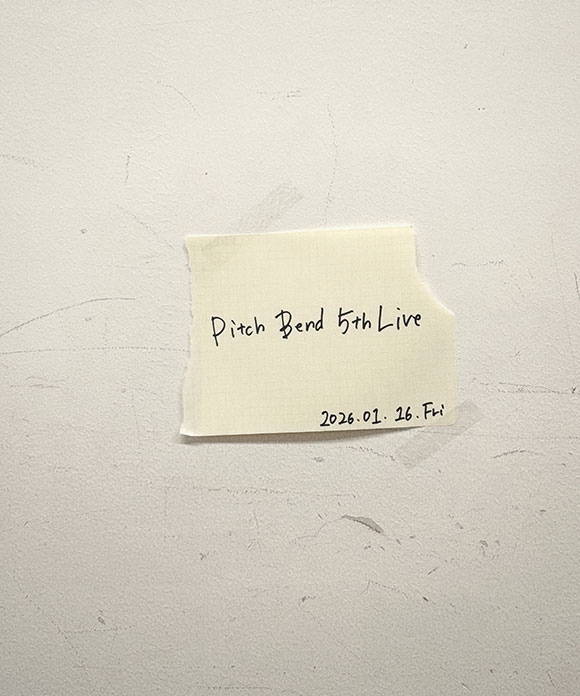 Pitch Bend 5th Live
2026.01.16.Fri